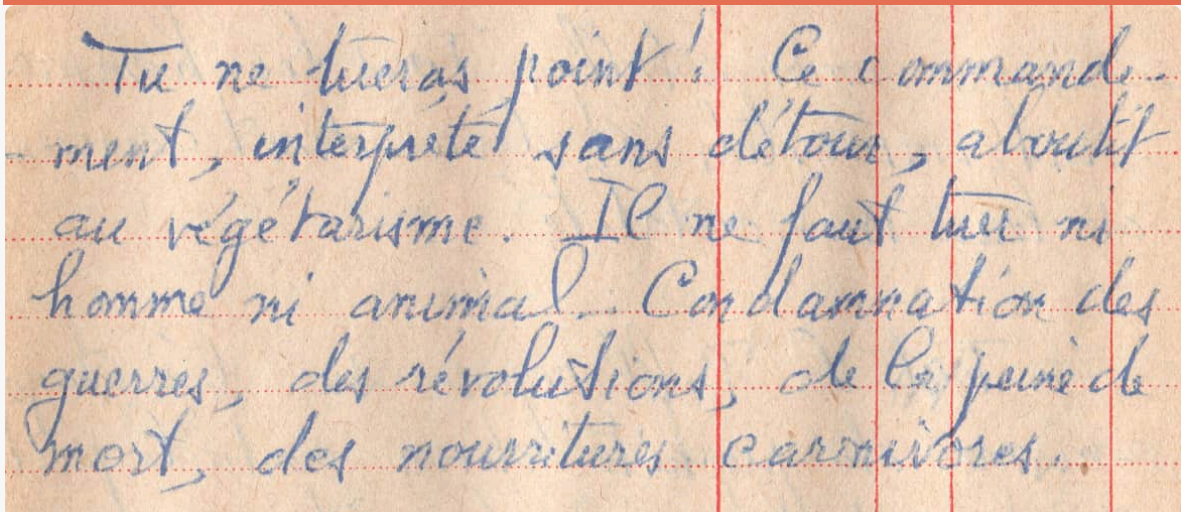 Tu ne tueras point! Ce command-
-ment, interprété sans détour, aboutit
au végétarisme. Il ne faut tuer ni
homme ni animal. Condamnation des
guerres, des révolutions, de la peine de
mort, des nourritures carnivores.